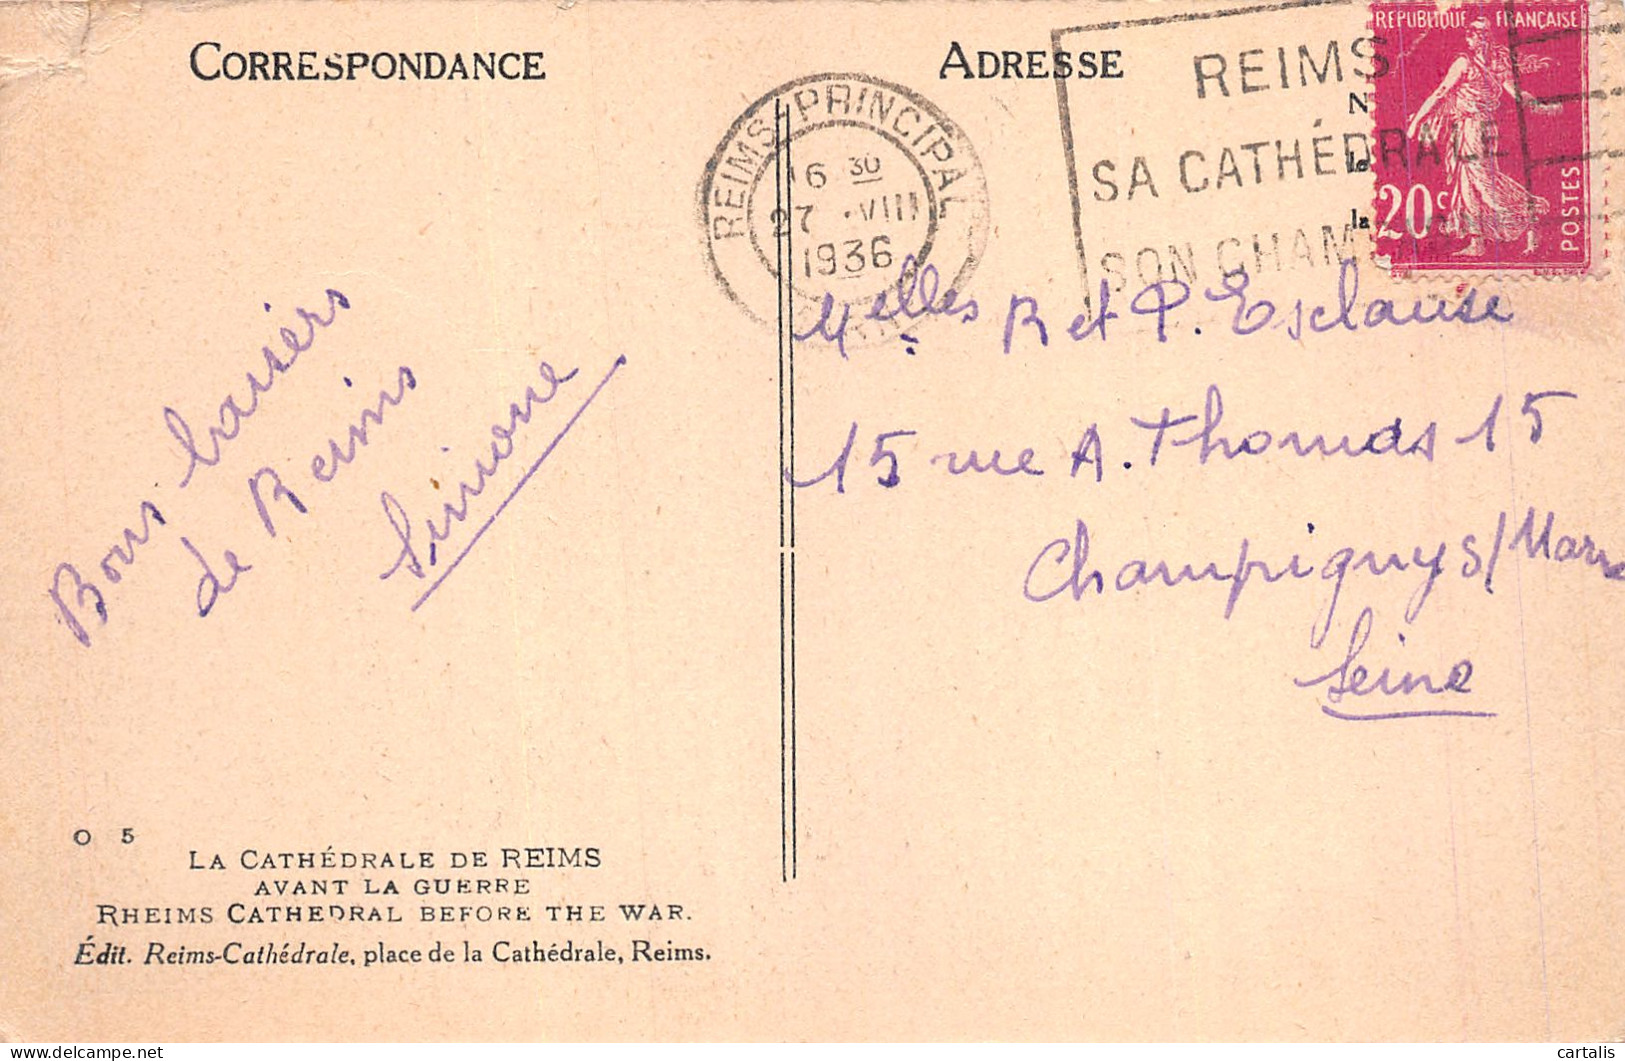 CORRESPONDANCE
ADRESSE
REIMS-PRINCIPAL
16 30
27 •VIII
1936
REIMS
SA CATHÉDRALE
SON CHAM
RÉPUBLIQUE FRANÇAISE
20c
POSTES
N
le
la
Bons baisers
de Reims
Simone
Melles R et P. Esclause
15 rue A. Thomas 15
Champigny s/Marne
Seine
O 5
LA CATHÉDRALE DE REIMS
AVANT LA GUERRE
RHEIMS CATHEDRAL BEFORE THE WAR.
Édit. Reims-Cathédrale, place de la Cathédrale, Reims.
cartalis